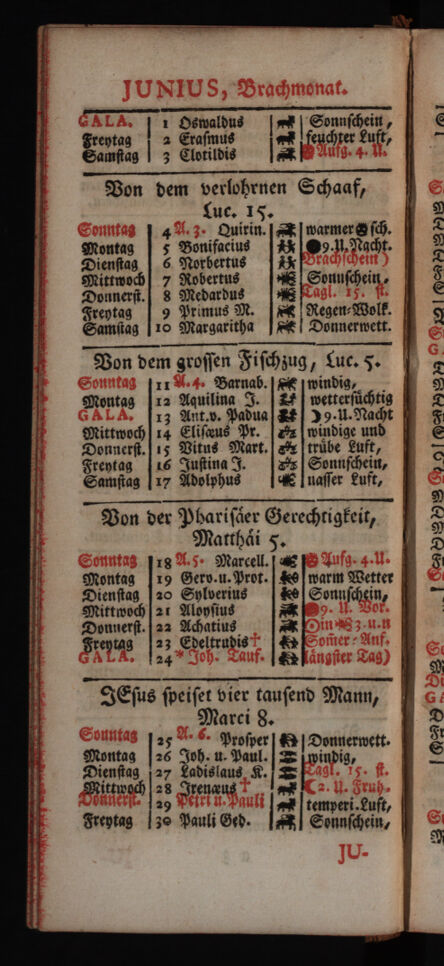 JUNIUS, Brachmonat.
GALA. 1 Oswaldus Sonnschein,
Freytag 2 Erasmus feuchter Luft,
Samstag 3 Clotildis Aufg. 4. U.
Von dem verlohrnen Schaaf,
Luc. 15.
Sonntag 4 A. 3. Quirin. warmer sch.
Montag 5 Bonifacius 9. U. Nacht.
Dienstag 6 Norbertus Brachschein)
Mittwoch 7 Robertus Sonnschein,
Donnerst. 8 Medardus Tagl. 15. st.
Freytag 9 Primus M. Regen-Wolk.
Samstag 10 Margaritha Donnerwett.
Von dem grossen Fischzug, Luc. 5.
Sonntag 11 A. 4. Barnab. windig,
Montag 12 Aquilina J. wettersüchtig
GALA. 13 Ant. v. Padua ☽ 9. U. Nacht
Mittwoch 14 Elisæus Pr. windige und
Donnerst. 15 Vitus Mart. trübe Luft,
Freytag 16 Justina J. Sonnschein,
Samstag 17 Adolphus nasser Luft,
Von der Pharisäer Gerechtigkeit,
Matthäi 5.
Sonntag 18 A. 5. Marcell. Aufg. 4. U.
Montag 19 Gerv. u. Prot. warm Wetter
Dienstag 20 Sylverius Sonnschein,
Mittwoch 21 Aloysius 9. U. Vor.
Donnerst. 22 Achatius ☉ in 3. u. n
Freytag 23 Edeltrudis † Som̄er-Anf.
GALA. 24 * Joh. Tauf. längster Tag)
JEsus speiset vier tausend Mann,
Marci 8.
Sonntag 25 A. 6. Prosper Donnerwett.
Montag 26 Joh. u. Paul. windig,
Dienstag 27 Ladislaus K. Tagl. 15. st.
Mittwoch 28 Irenæus † ☾ 2. U. Fruh.
Donnerst. 29 Petri u. Pauli temperi. Luft,
Freytag 30 Pauli Ged. Sonnschein,
JU-